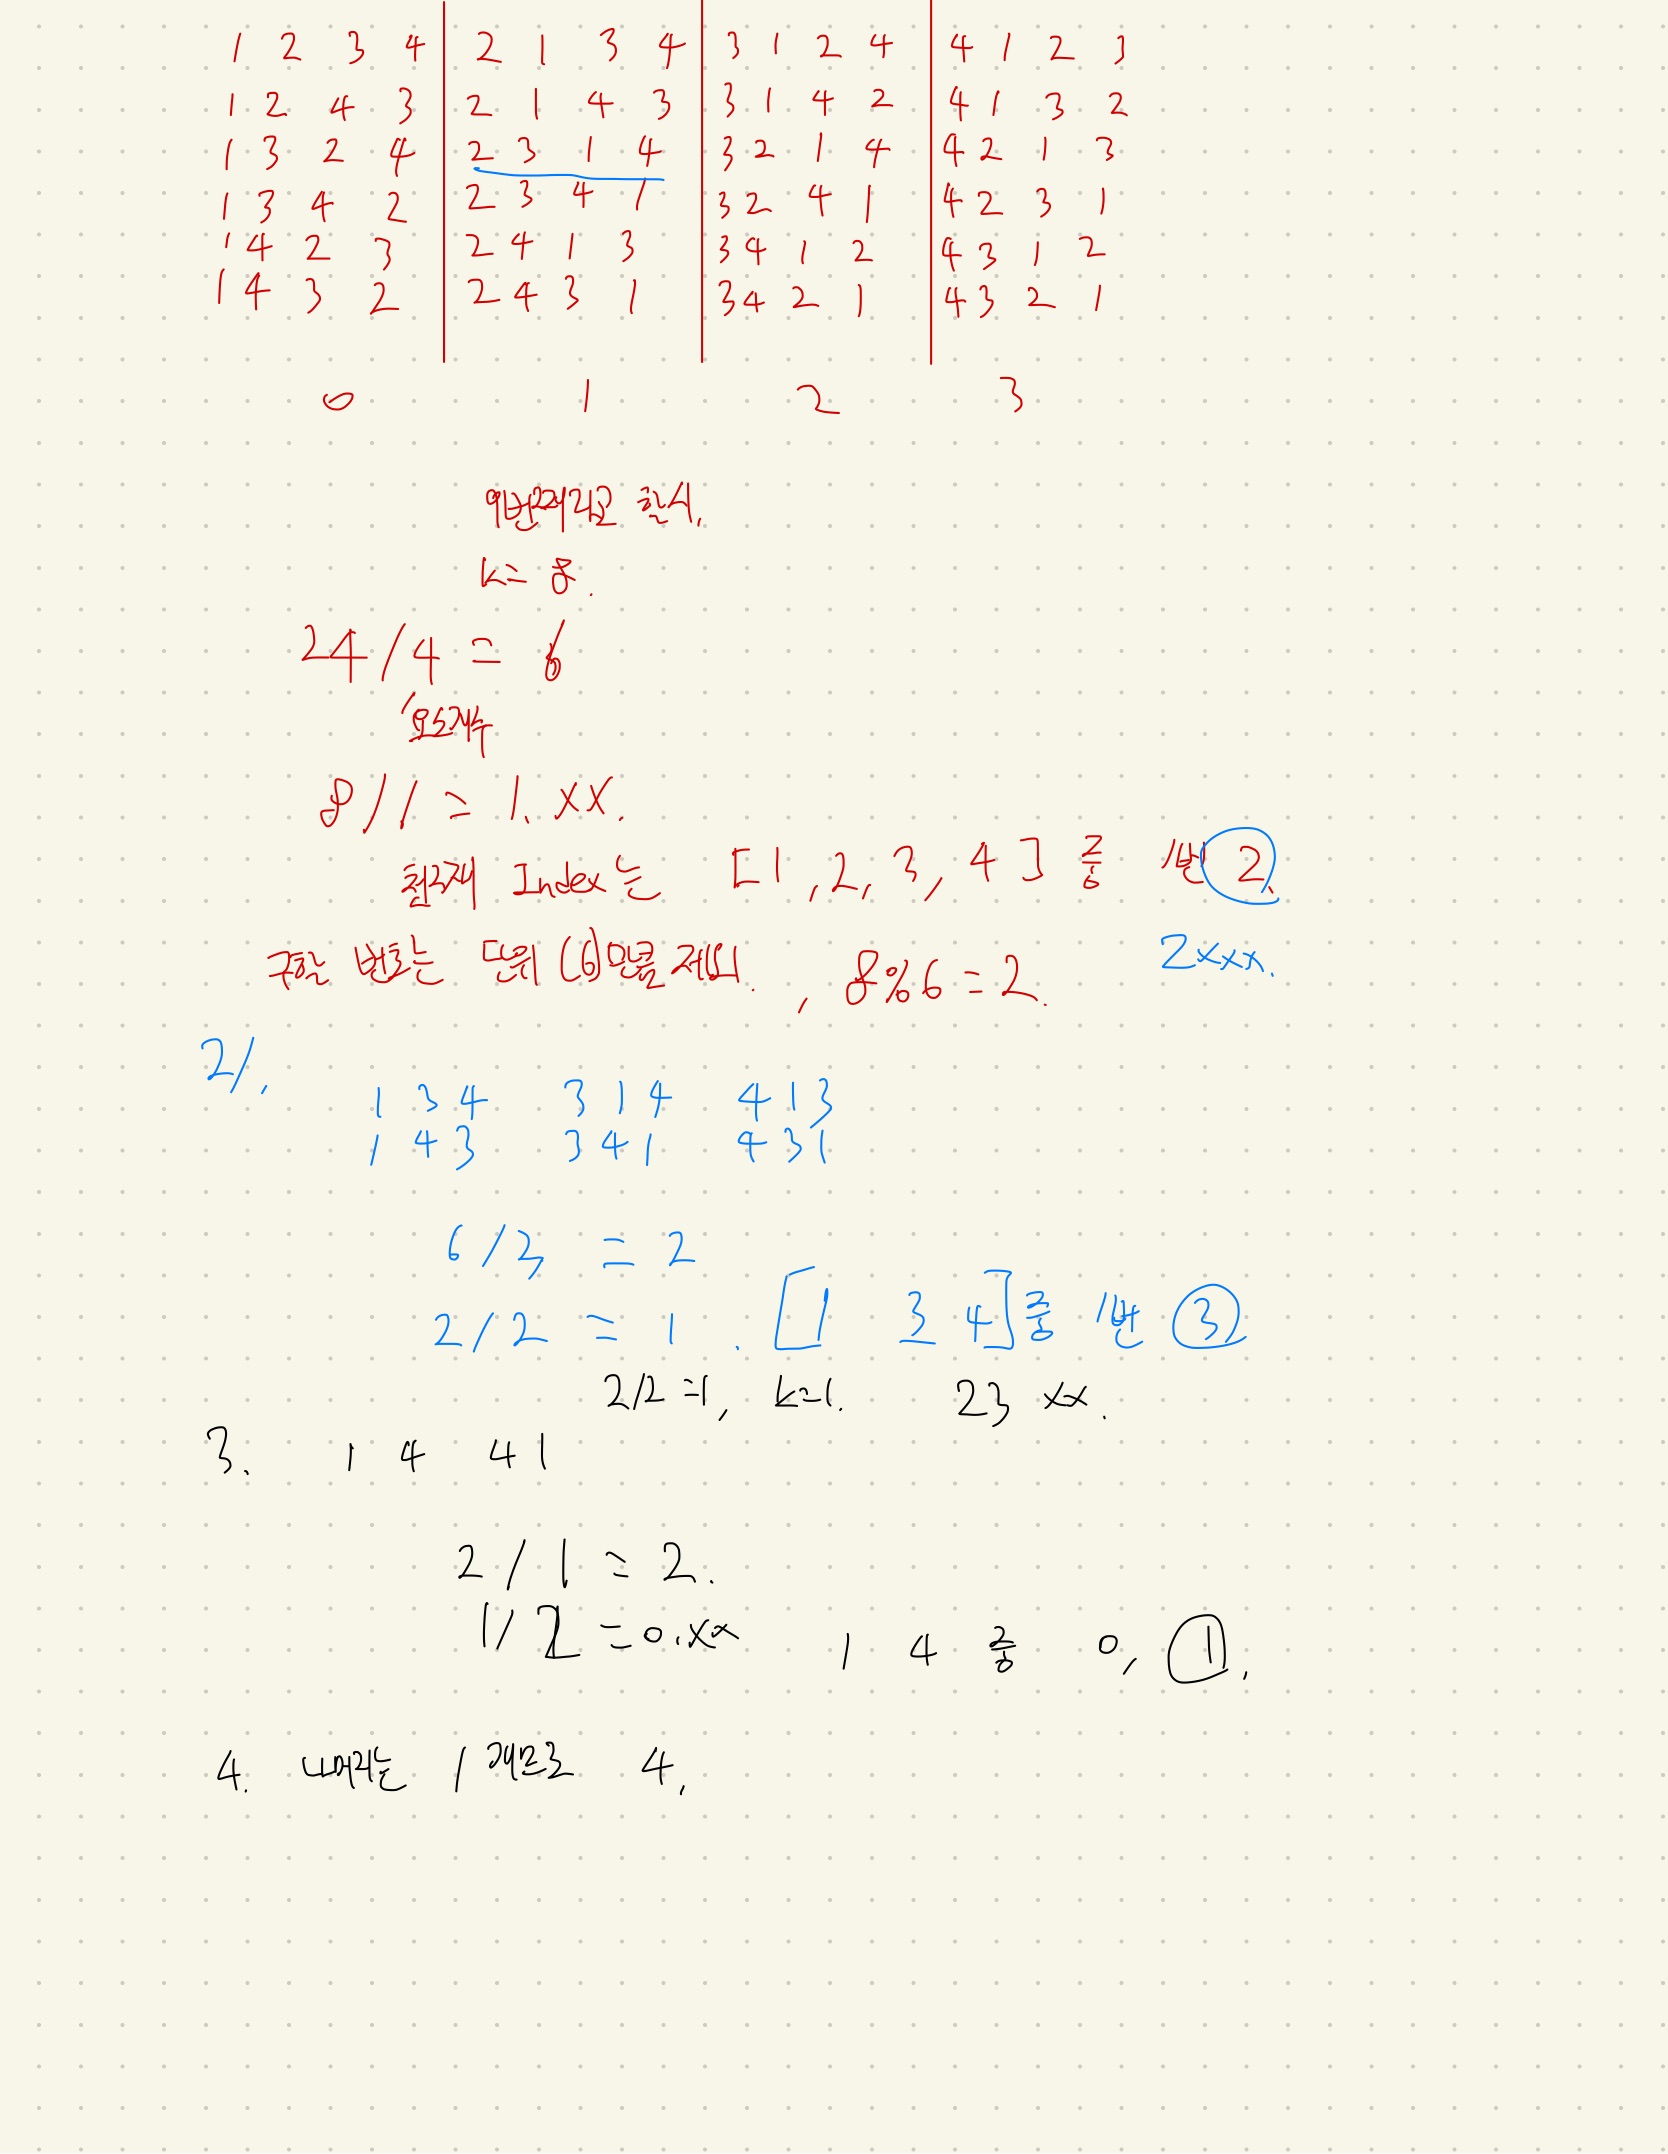 1 2 3 4 2 1 3 4 3 1 2 4 4 1 2 3
1 2 4 3 2 1 4 3 3 1 4 2 4 1 3 2
1 3 2 4 2 3 1 4 3 2 1 4 4 2 1 3
1 3 4 2 2 3 4 1 3 2 4 1 4 2 3 1
1 4 2 3 2 4 1 3 3 4 1 2 4 3 1 2
1 4 3 2 2 4 3 1 3 4 2 1 4 3 2 1
0 1 2 3
9번째라고 할시,
k= 8.
24/4 = 6
요소개수
8 // = 1.xx.
첫번째 Index는 [1,2,3,4] 중 1번 2.
2xxx.
구할 번호는 단위 (6)만큼 제외. , 8%6=2.
2/.
1 3 4 3 1 4 4 1 3
1 4 3 3 4 1 4 3 1
6/3 = 2
2/2 = 1 . [1 3 4]중 1번 3
2/2=1, k=1. 23 xx.
3. 1 4 4 1
2/1 = 2.
1/2 = 0.xx 1 4 중 0, 1.
4. 나머지는 1개므로 4.